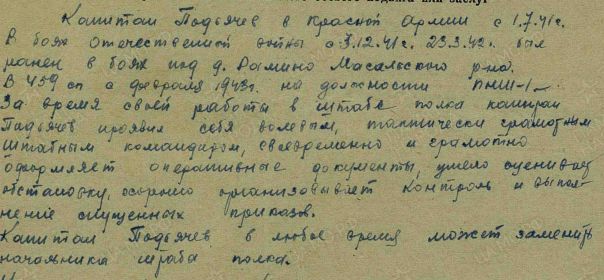 Капитан Подъячев в Красной Армии с 1.7.41г.
В боях Отечественной войны с 3.12.41г. 23.3.42. был
ранен в боях под д. Рамино Масальского р-на.
В 459 сп с февраля 1943г. на должности ПНШ-1
За время своей работы в штабе полка капитан
Подъячев проявил себя волевым, тактически грамотным
штабным командиром, своевременно и грамотно
оформляет оперативные документы, умело оценивает
обстановку, хорошо организовывает контроль и выпол-
нение спущенных приказов.
Капитан Подъячев в любое время может заменить
начальника штаба полка.